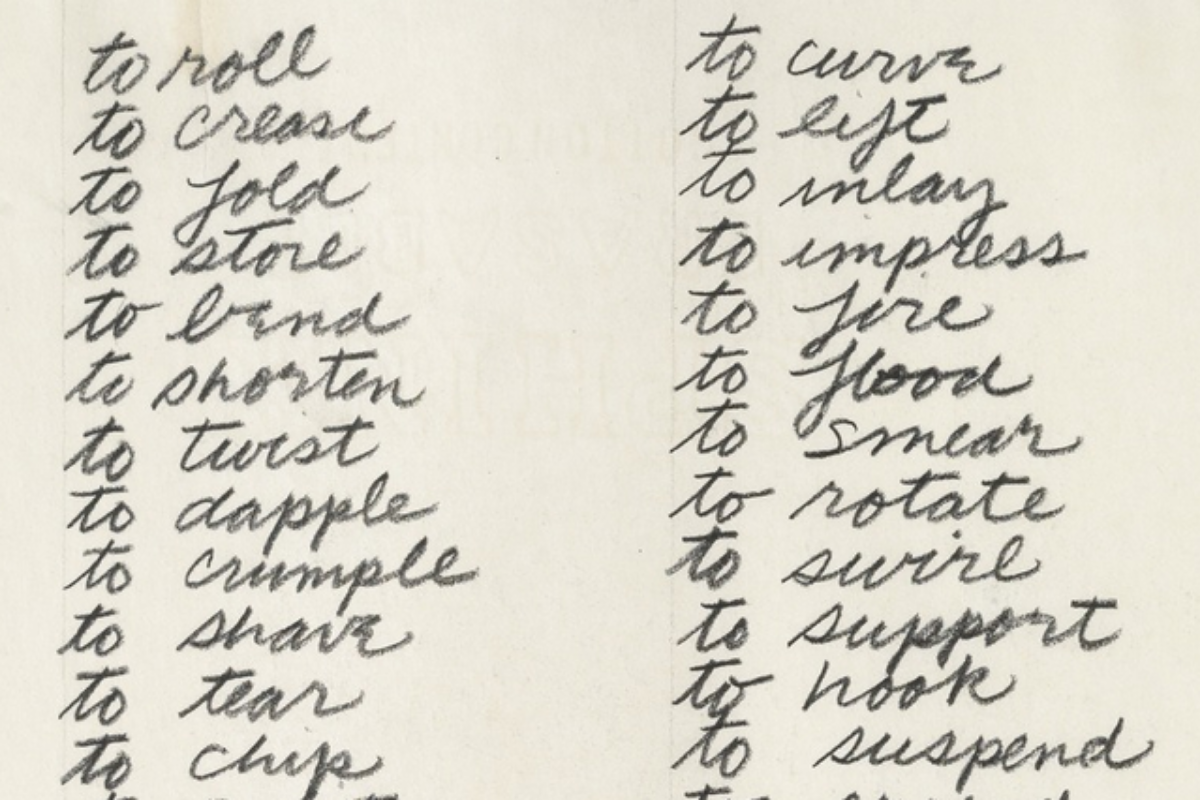 to roll
to crease
to fold
to store
to bend
to shorten
to twist
to dapple
to crumple
to shave
to tear
to chip
to curve
to lift
to inlay
to impress
to fire
to flood
to smear
to rotate
to swirl
to support
to hook
to suspend